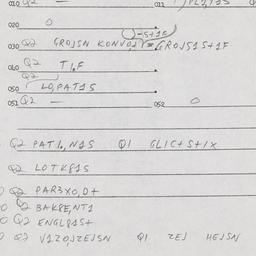 010 Q2 — 011
020 0
-S+1S
030 Q2 GROJSN KONVO2 =GROJS1S+1F
040 Q2 T1,F
Q2
050 LO,PAT1S
051 Q2 — 052 0
Q2 PAT1,N1S Q1 GLIC+S+1X
Q2 LOTK81S
Q2 PAR3XO,D+
Q2 BAK8E,NT1
Q2 ENGL81S+
Q2 V1ZOJZEJSN Q1 ZEJ HEJSN